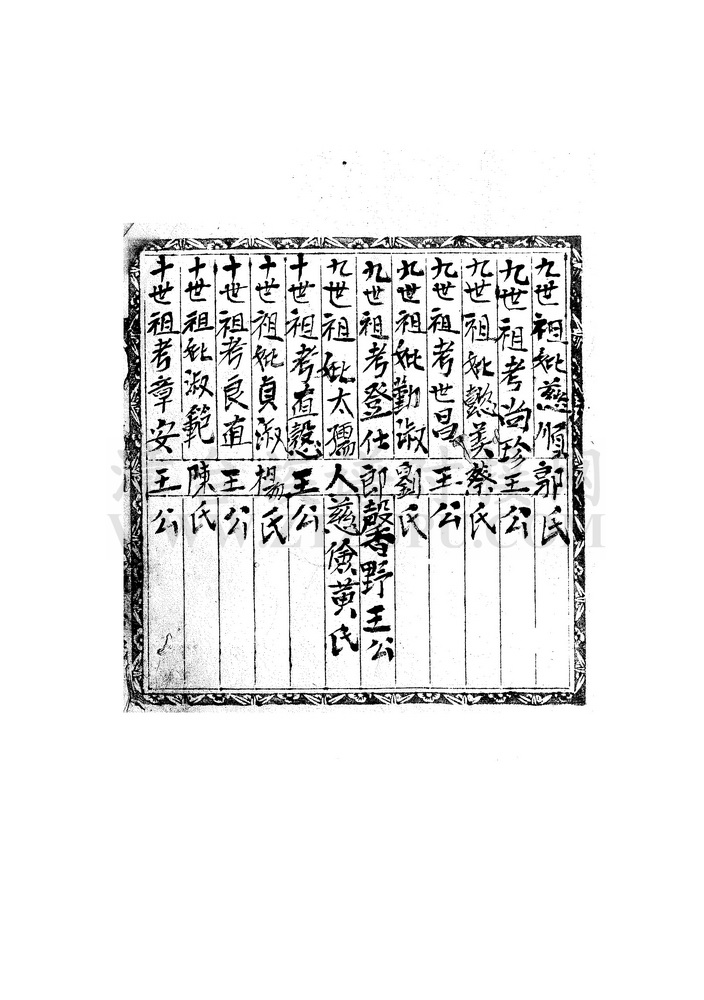 九世祖妣慈順郭氏
九世祖考尚珍王公
九世祖妣懿美蔡氏
九世祖考世昌王公
九世祖妣勤淑劉氏
九世祖考登仕郎馨野王公
九世祖妣太孺人慈儉黃氏
十世祖考直愨王公
十世祖妣貞淑楊氏
十世祖考良直王公
十世祖妣淑範陳氏
十世祖考章安王公